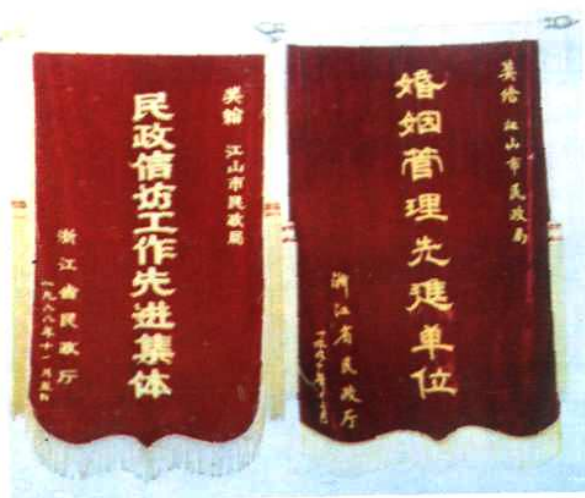 奖给 江山市民政局
民政信访工作先进集体
浙江省民政厅
一九八八年十一月
奖给 江山市民政局
婚姻管理先進单位
浙江省民政厅